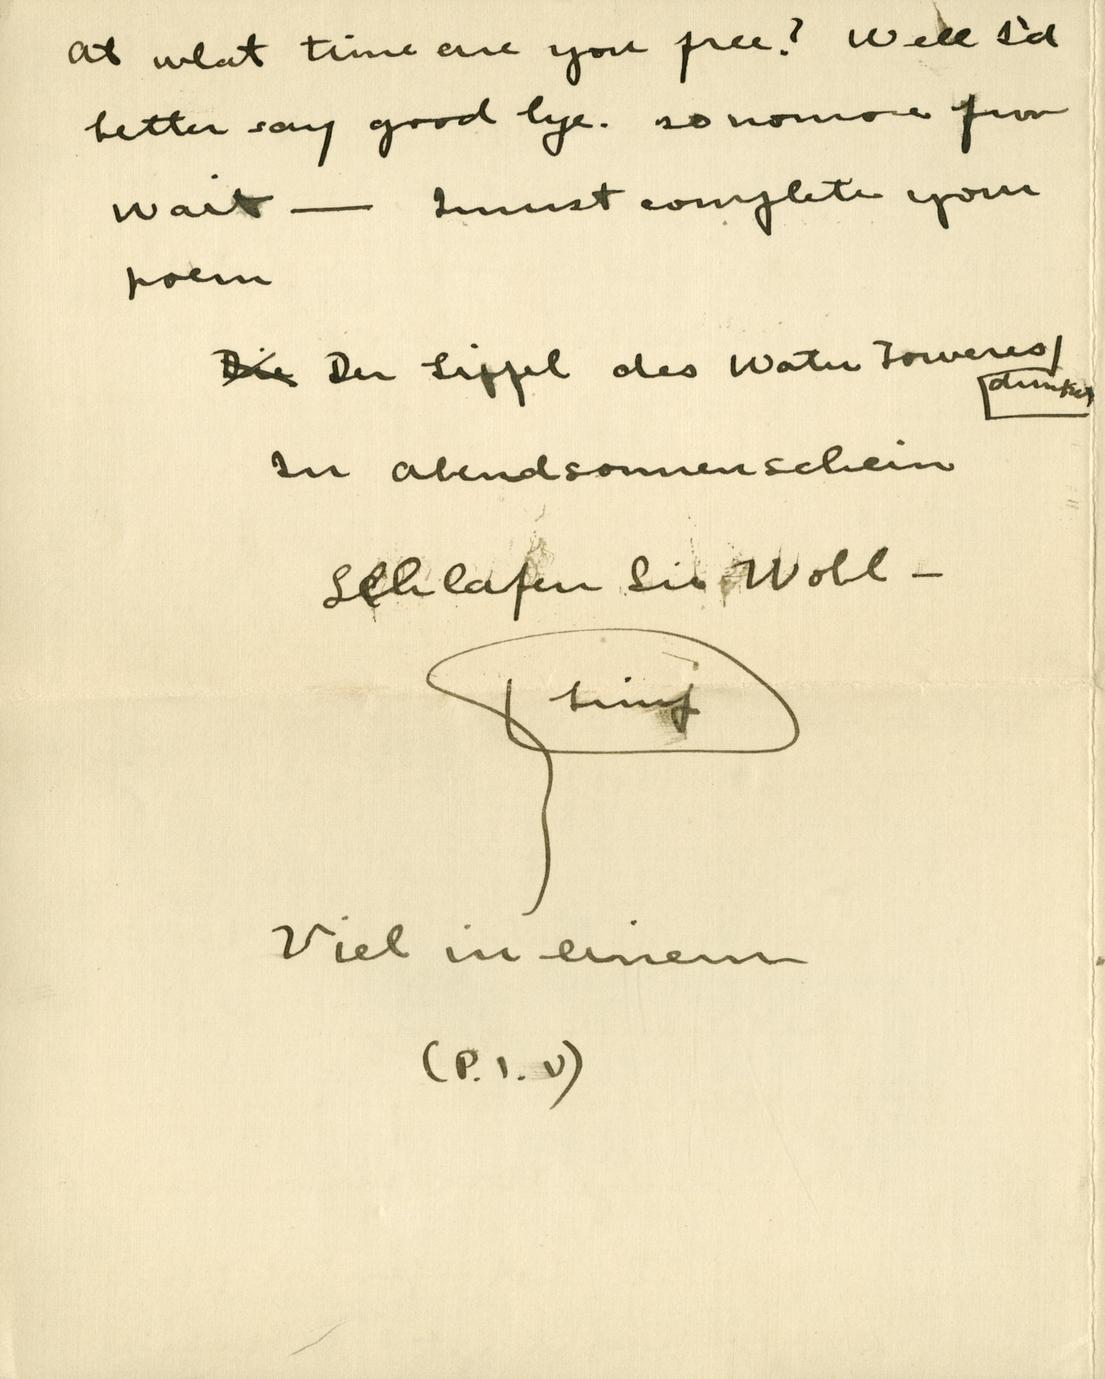 At what time are you free? Well I'd
better say good bye. so no more from
Wait — I must complete your
poem
Die Der Gippel des Water Toweres
funkelt
In abendsonnenschein
Schlafen Sie Wohl —
Viel in einem
(P.I.V)